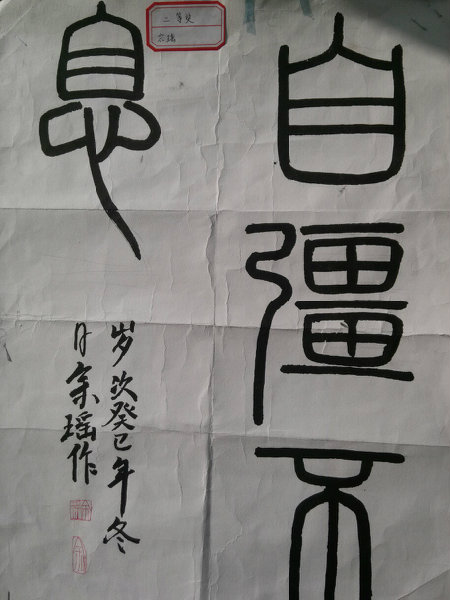 自彊不
息
岁次癸巳年冬
月余瑶作
二等奖
余瑶